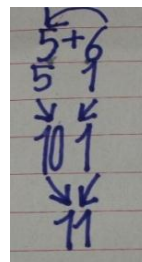 5+6
5 1
10 1
11